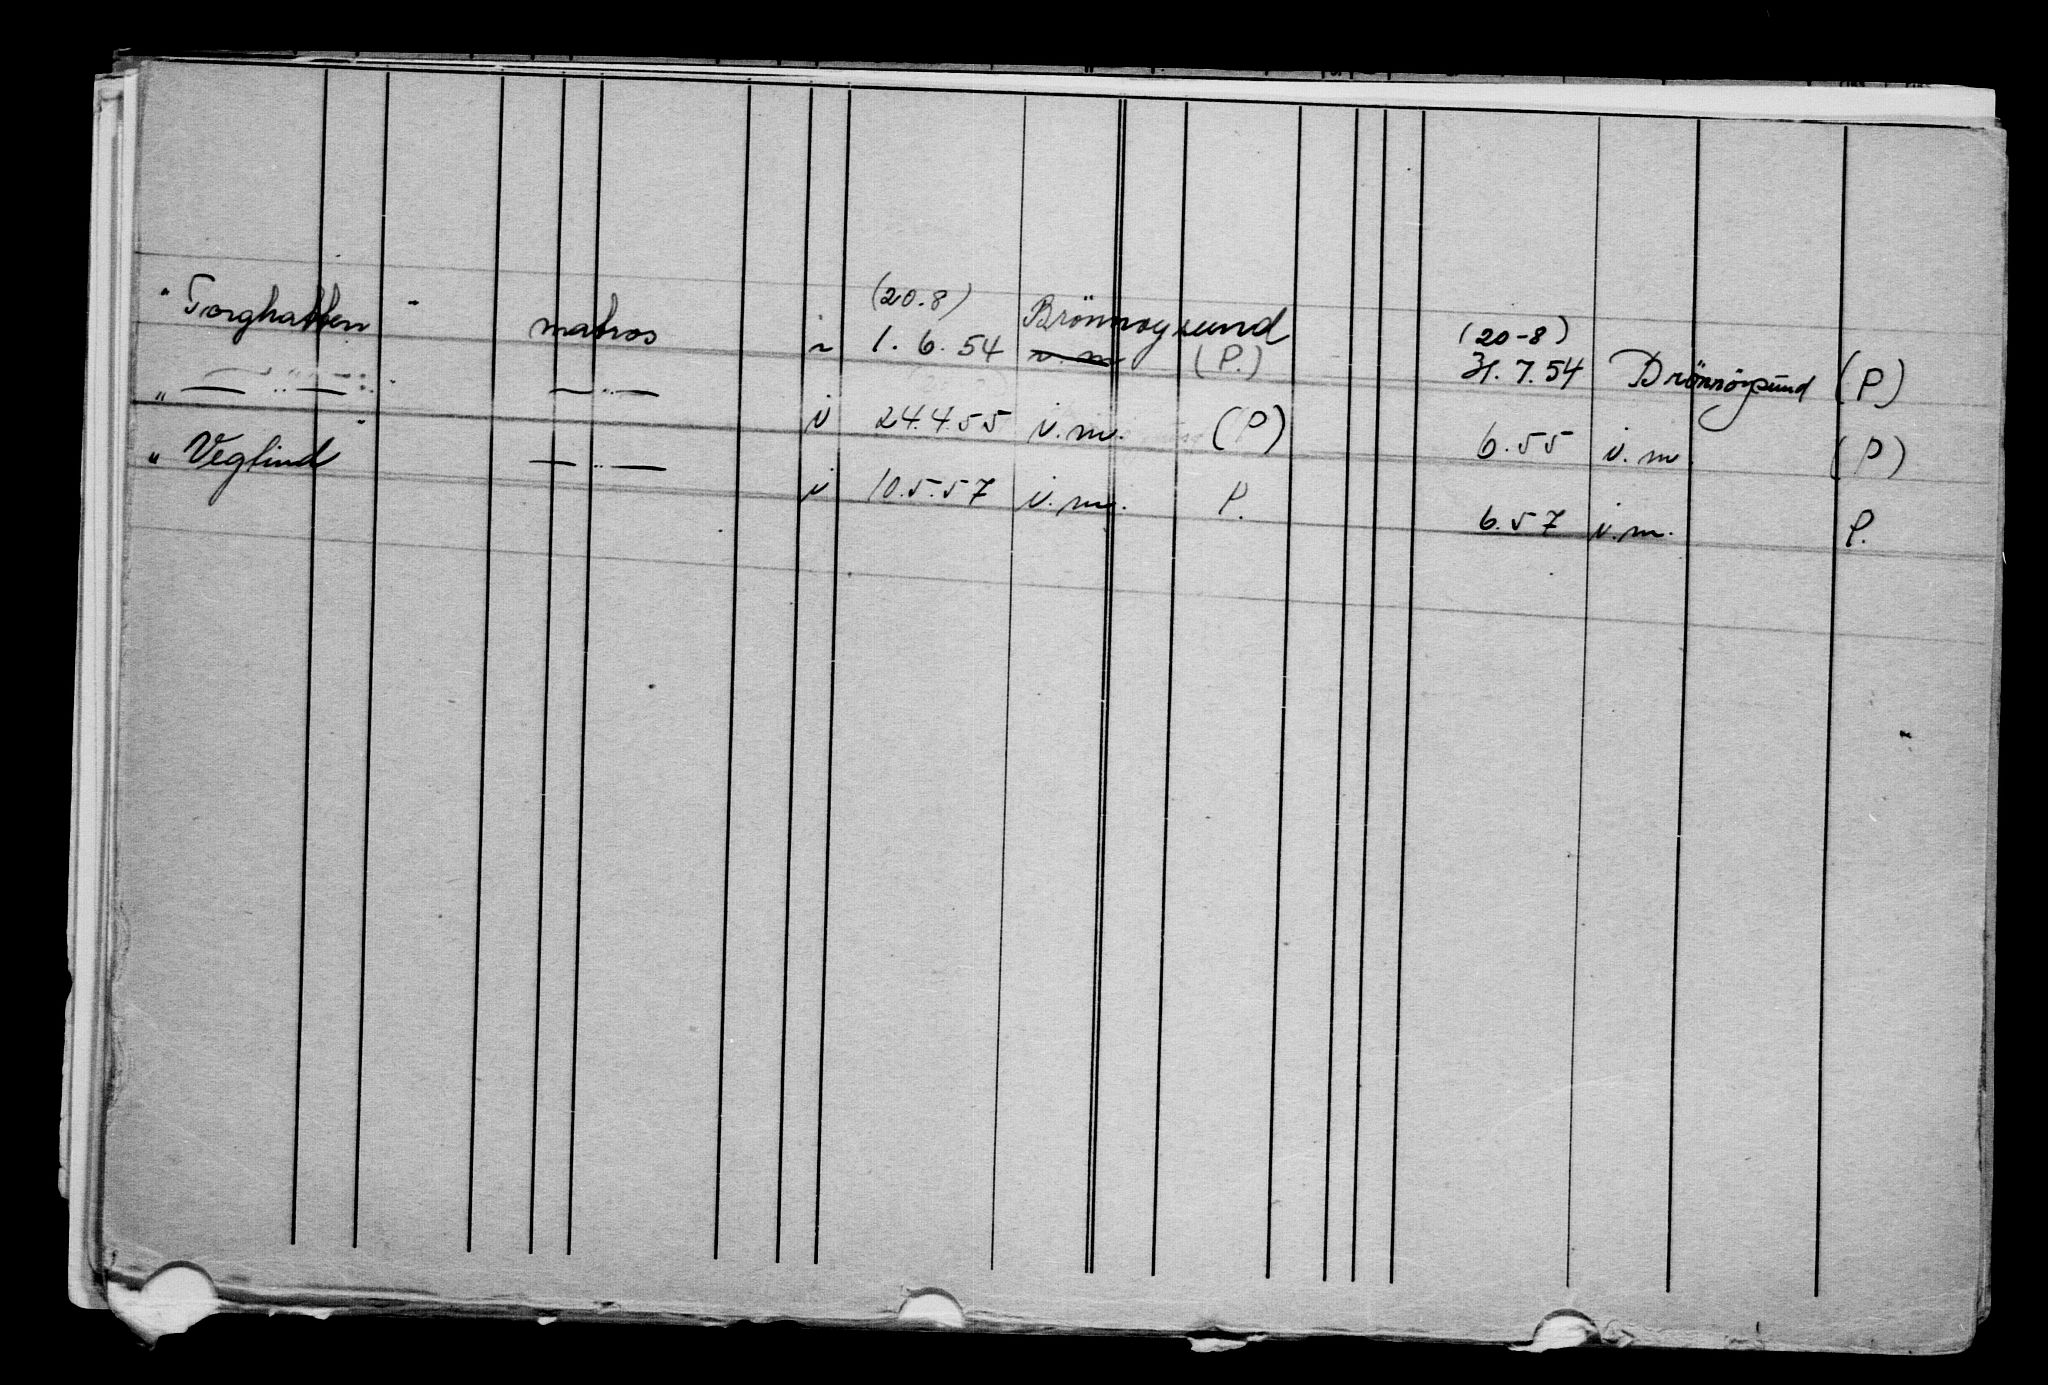 (20.8) Brönnøysund (20-8)
"Torghatten" matros i 1.6.54 i. m (P.) 31.7.54 Brönnöysund (P)
" — " — — " — i 24.4.55 i. m. (P) 6.55 i. m (P)
"Veglind" — " — i 10.5.57 i. m. P. 6.57 i. m. P.